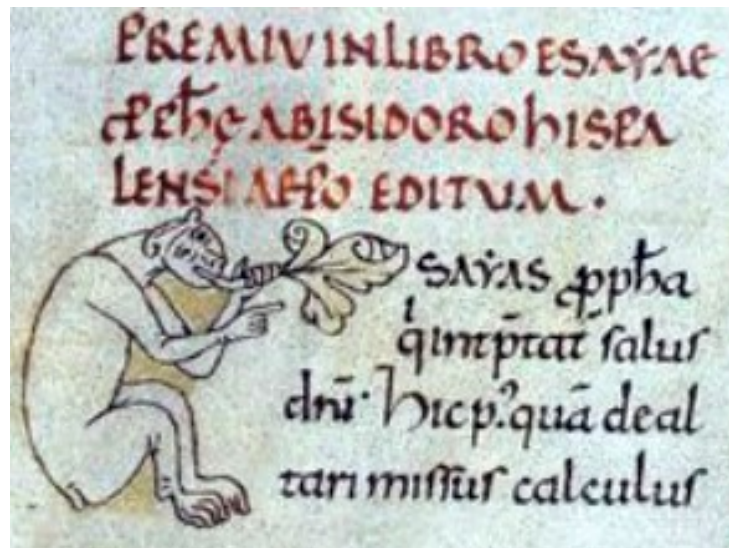 PREMIU IN LIBRO ESAẎAE
PPħĘ AB ISIDORO hISPA
LENSI AREPO EDITUM.
SAẎAS ꝓpħa
qͥ intp̄tat̄ salus
dnī· hic p̉ quā de al
tari missus calculus